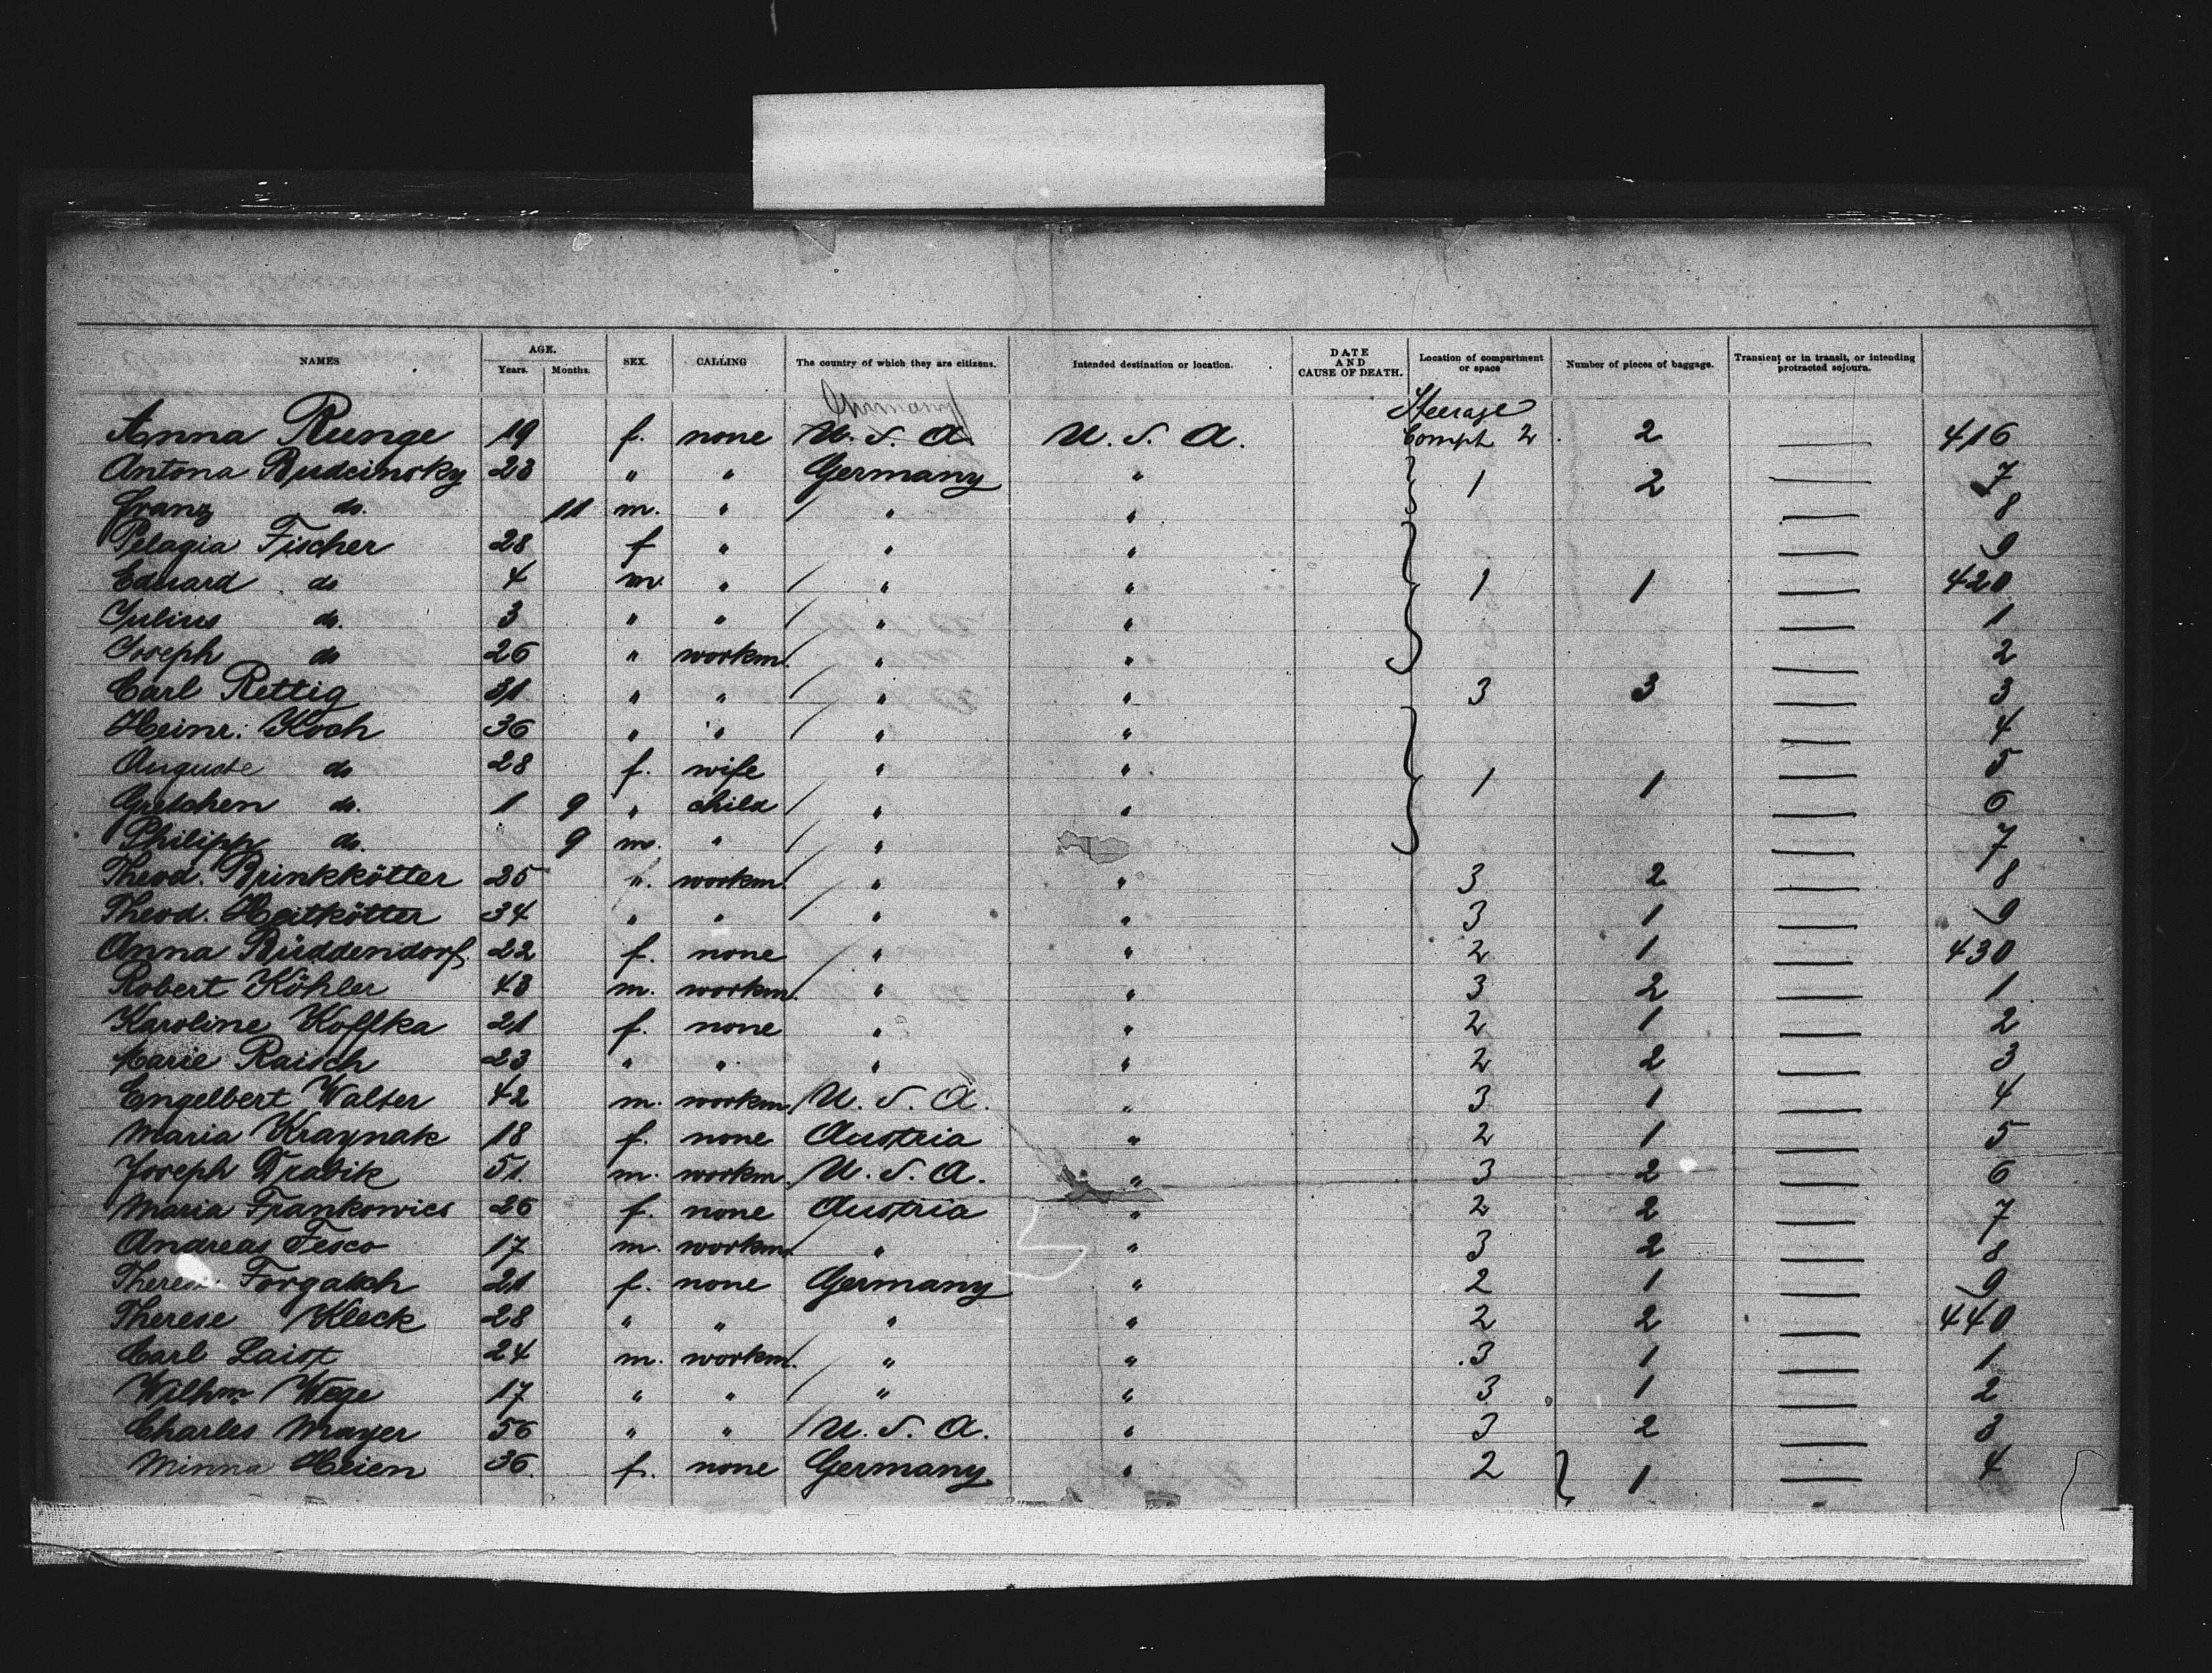 NAMES AGE. Years. Months. SEX. CALLING The country of which they are citizens. Intended destination or location. DATE AND CAUSE OF DEATH. Location of compartment or space Number of pieces of baggage. Transient or in transit, or intending protracted sojourn.
Germany Steerage
Anna Runge 19 f. none U. S. A. U. S. A. Comph 2. 2 — 416
Antona Budcinsky 23 " " Germany " 1 2 — 7
Franz do. 11 m. " " " — 8
Pelagia Fischer 28 f " " " — 9
Eduard do 4 m. " " " 1 1 — 420
Julius do. 3 " " " " — 1
Joseph do 26 " workm. " " — 2
Carl Rettig 31 " " " " 3 3 — 3
Heinr: Koch 36 " " " " — 4
Auguste do 28 f. wife " " 1 1 — 5
Gretchen do. 1 9 " child " " — 6
Philipp do. 9 m. " " — 7
Theod. Brinkkötter 25 ". workm. " " 3 2 — 8
Theod. Heitkötter 34 " " " " 3 1 — 9
Anna Büddendorf. 22 f. none " " 2 1 — 430
Robert Köhler 43 m. workm. " " 3 2 — 1
Karoline Koffka 21 f. none " " 2 1 — 2
Marie Raisch 23 " " " " 2 2 — 3
Engelbert Walter 42 m. workm. U. S. A. " 3 1 — 4
Maria Kraynak 18 f. none Austria " 2 1 — 5
Joseph Drabik 51. m. workm. U. S. A. " 3 2 — 6
Maria Frankowics 26 f. none Austria " 2 2 — 7
Andreas Fesco 17 m. workm. " " 3 2 — 8
Forgatch 21 f. none Germany " 2 1 — 9
Therese Kleck 28 " " " " 2 2 — 440
Carl Laist 24 m. workm. " " 3 1 — 1
Wilhm. Wege 17 " " " " 3 1 — 2
Charles Mayer 56 " " U. S. A. " 3 2 — 3
Minna Heien 36. f. none Germany " 2 1 — 4